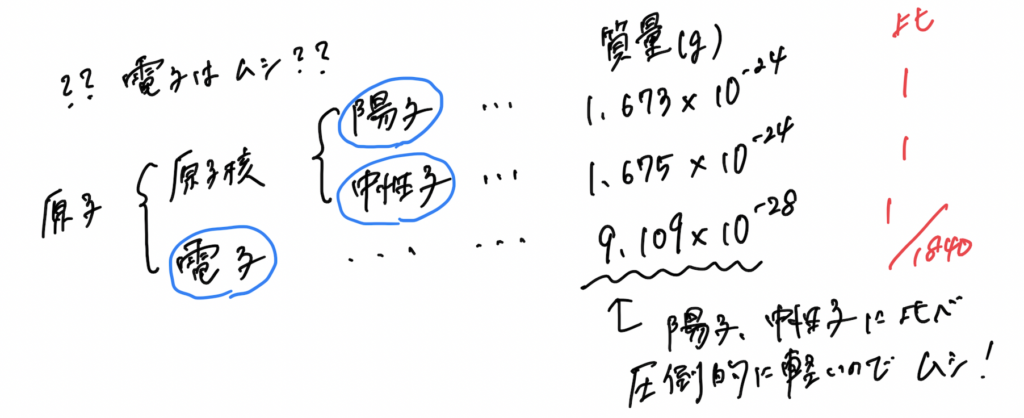 ?? 電子はムシ??
質量(g)
比
陽子 ... 1.673×10⁻²⁴ 1
原子 { 原子核 {
中性子 ... 1.675×10⁻²⁴ 1
電子 ... ... 9.109×10⁻²⁸ 1/1840
↑ 陽子、中性子に比べ
圧倒的に軽いので ムシ!